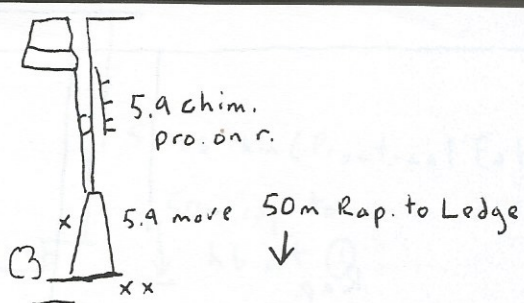 5.9 chim.
pro. on r.
x 5.9 move 50m Rap. to Ledge
3
x x